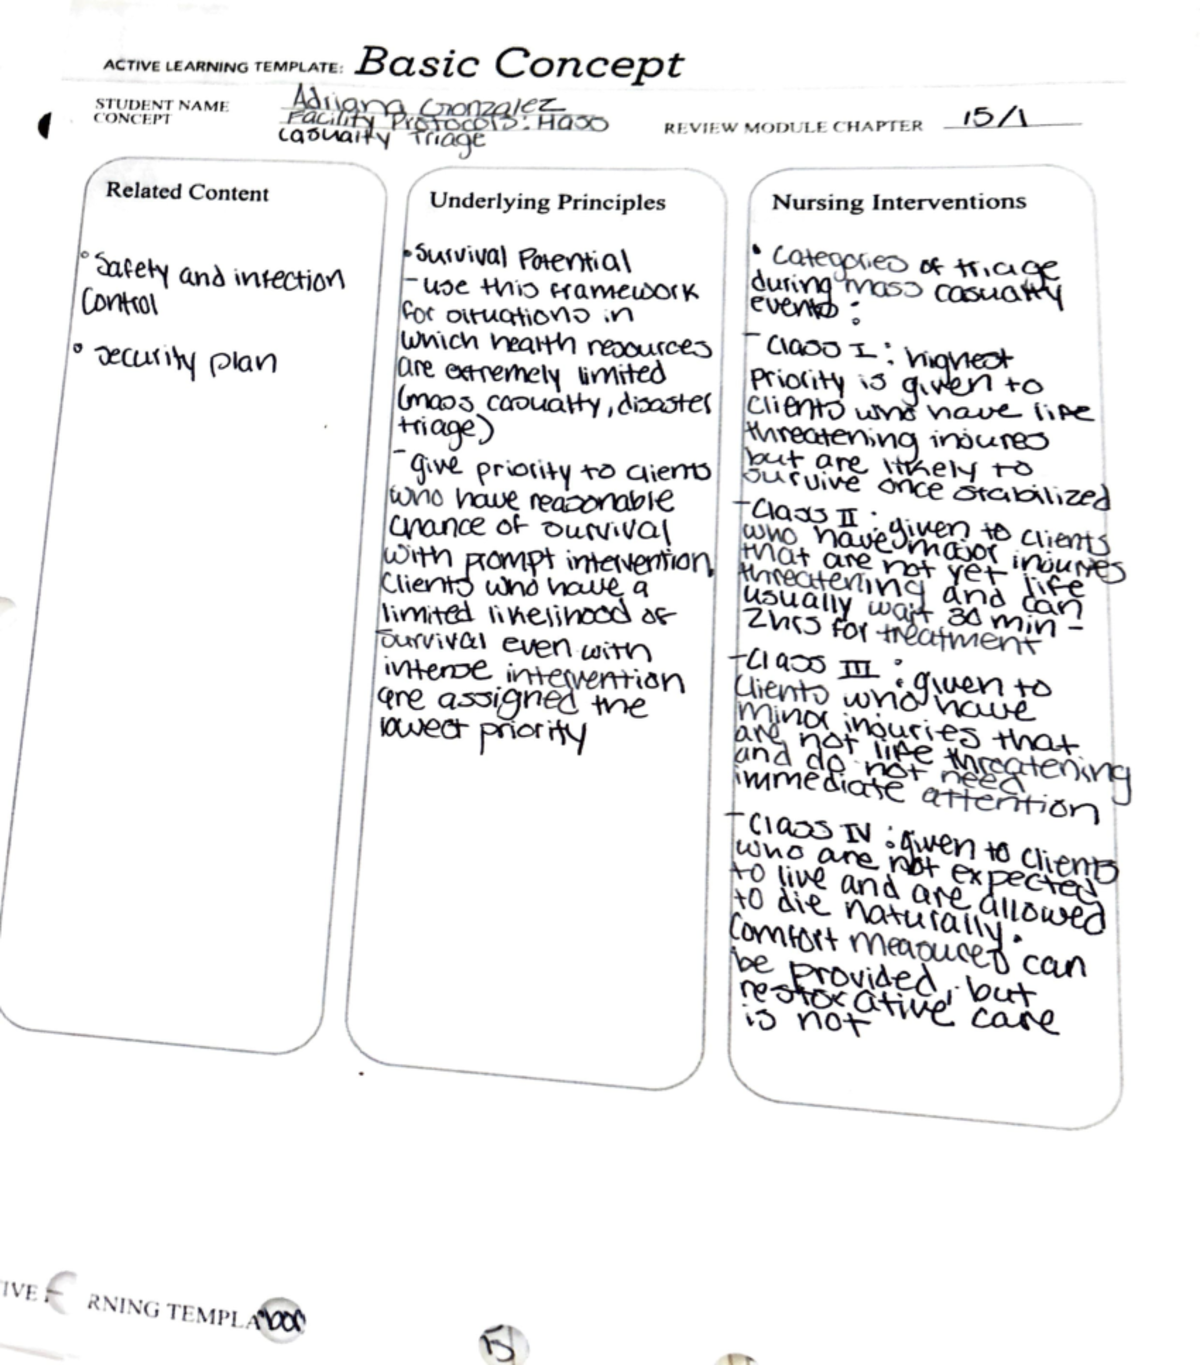 ACTIVE LEARNING TEMPLATE: Basic Concept
STUDENT NAME Adriana Gonzalez
CONCEPT Facility Protocols: Mass
casualty Triage
REVIEW MODULE CHAPTER 15/1
Related Content
• Safety and infection
Control
• security plan
Underlying Principles
• Survival Potential
- use this framework
for situations in
which health resources
are extremely limited
(mass casualty, disaster
triage)
- give priority to clients
who have reasonable
chance of survival
with prompt intervention.
Clients who have a
limited likelihood of
survival even with
intense intervention
are assigned the
lowest priority
Nursing Interventions
• Categories of triage
during mass casualty
events:
- Class I: highest
Priority is given to
clients who have life
threatening injures
but are likely to
survive once stabilized
- Class II: given to clients
who have major injuries
that are not yet life
threatening and can
usually wait 30 min -
2hrs for treatment
- Class III: given to
clients who have
minor injuries that
are not life threatening
and do not need
immediate attention
- Class IV: given to clients
who are not expected
to live and are allowed
to die naturally.
Comfort measures can
be provided, but
restorative care
is not
IVE RNING TEMPLA